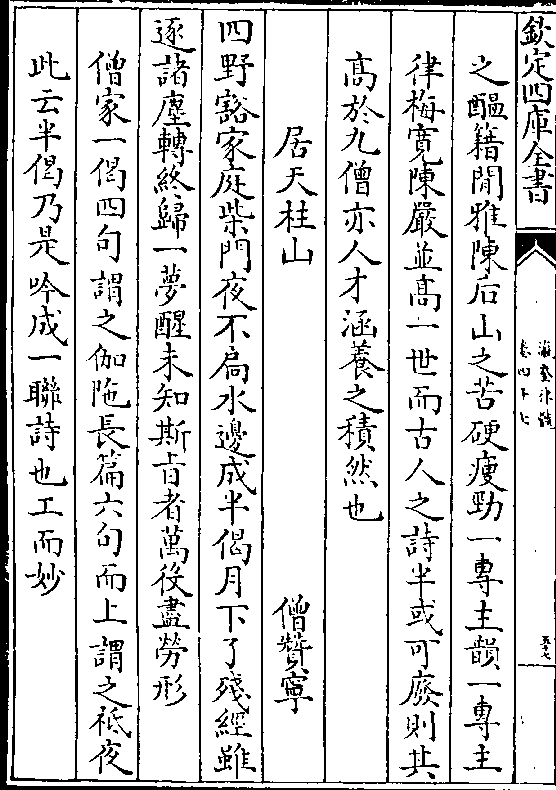 欽定四庫全書
瀛奎律髓
卷四十七
之醖籍閒雅陳后山之苦硬瘦勁一専主韻一専主
律梅寛陳嚴並髙一世而古人之詩半或可廢則其
髙於九僧亦人才涵養之積然也
居天柱山
僧贊寧
四野豁家庭柴門夜不扃水邊成半偈月下了殘經雖
逐諸塵轉終歸一夢醒未知斯㫖者萬役盡勞形
僧家一偈四句謂之伽陁長篇六句而上謂之祗夜
此云半偈乃是吟成一聯詩也工而妙